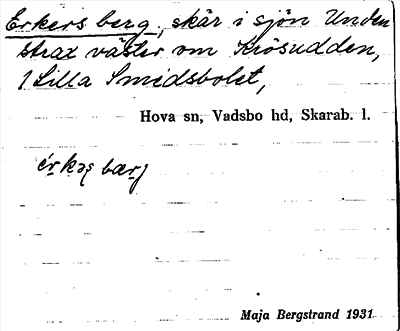 Erkers berg, skär i sjön Unden
strax väster om Krösudden,
1 Lilla Smidsbolet,
Hova sn, Vadsbo hd, Skarab. l.
bærj
Maja Bergstrand 1931